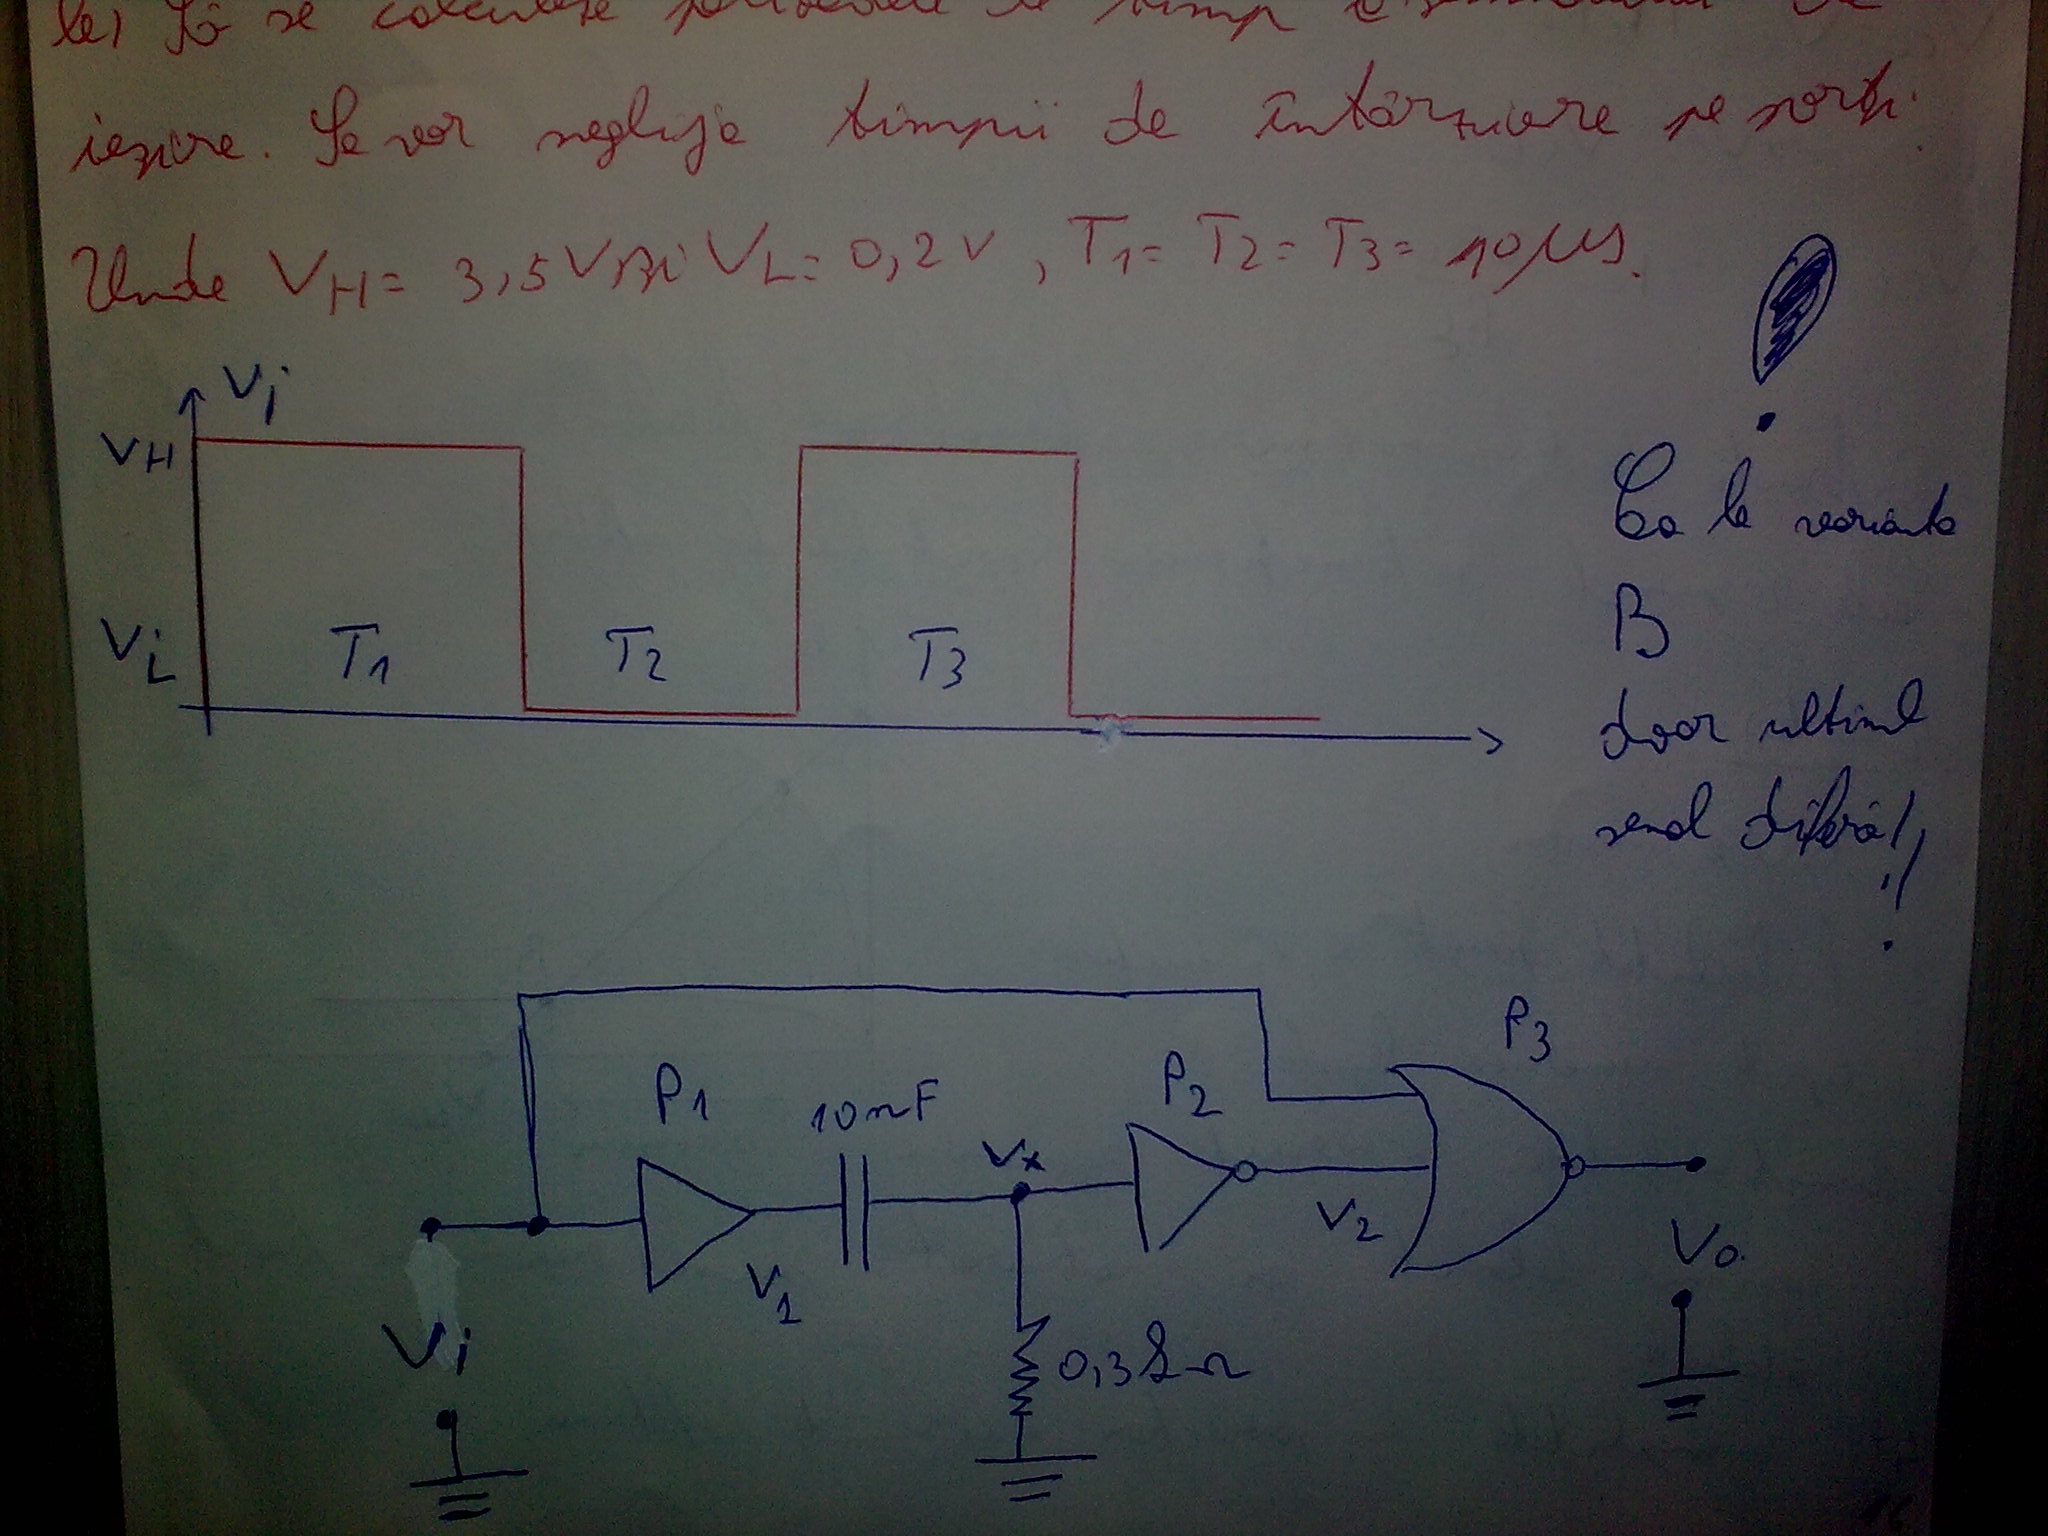 b) Să se calculeze perioadele de timp
ieșire. Se vor neglija timpii de întârziere pe porți.
Unde VH = 3,5V și VL = 0,2V, T1 = T2 = T3 = 10 µs.
Vi
VH
VL
T1 T2 T3
!
Ca la varianta
B
doar ultimul
diferă!!
P3
P1 10nF P2
Vx
V1
V2
Vo
Vi
0,3kΩ